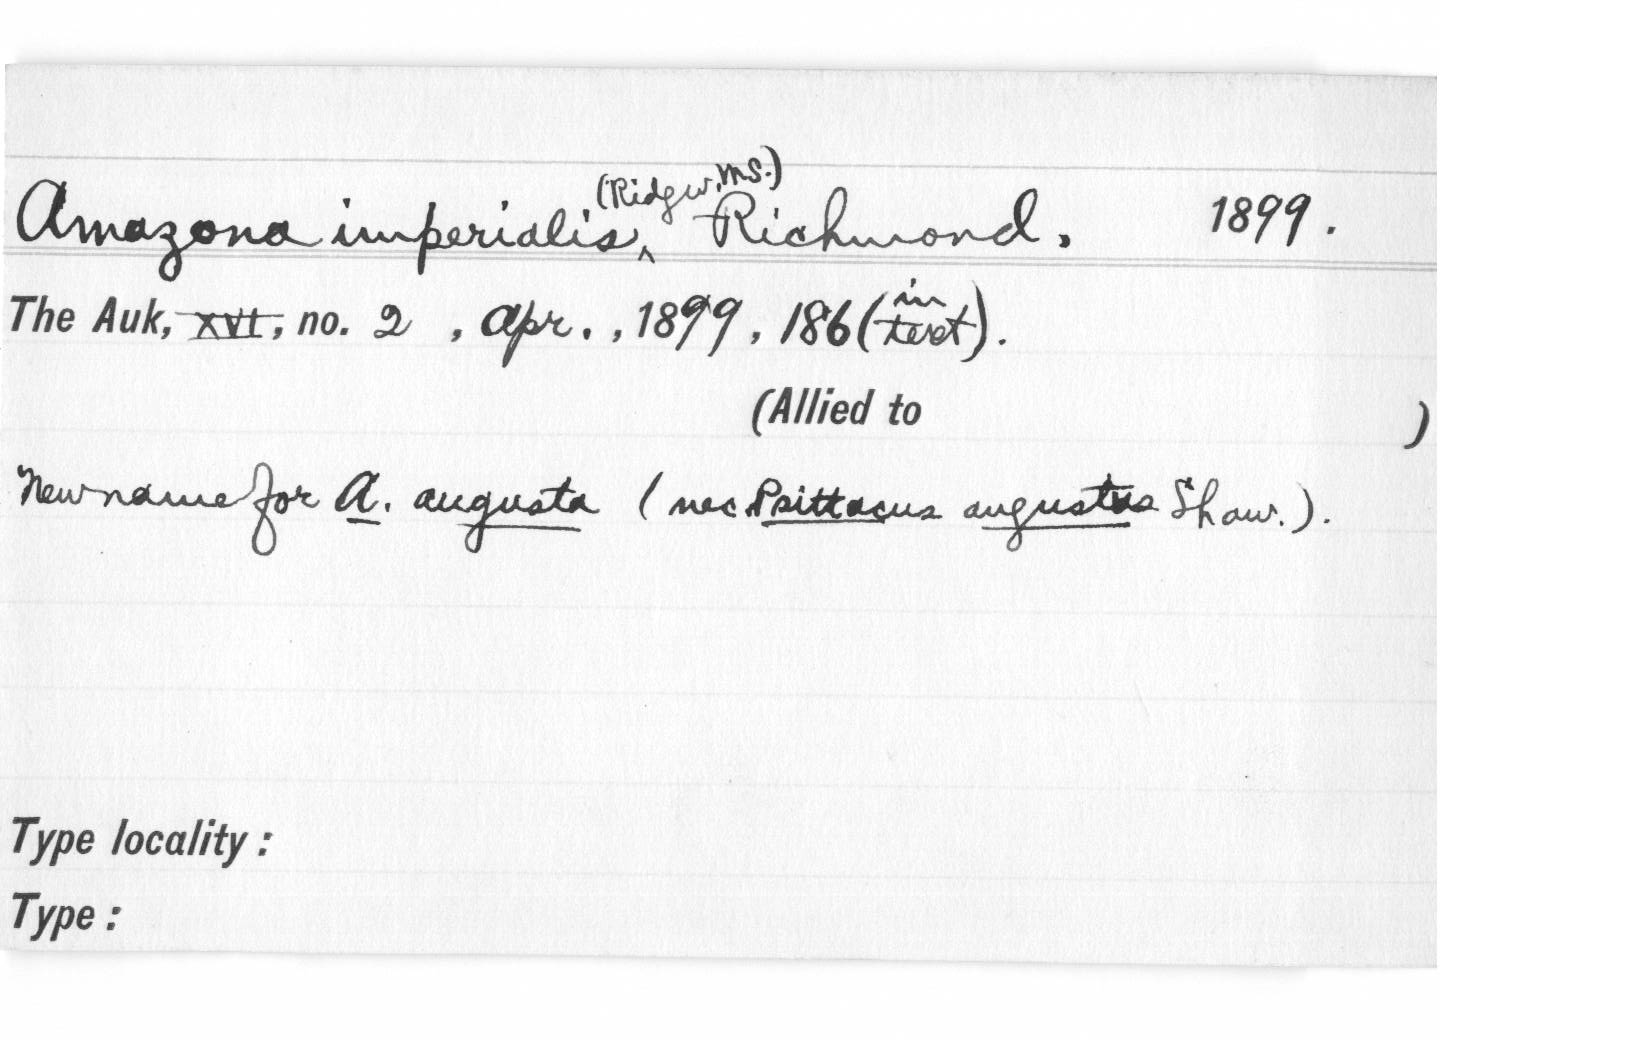 (Ridgw. MS.)
Amazona imperialis ^ Richmond. 1899.
The Auk, XVI, no. 2, Apr., 1899, 186 (in text).
(Allied to )
New name for A. augusta (nec Psittacus augustus Shaw.).
Type locality :
Type :